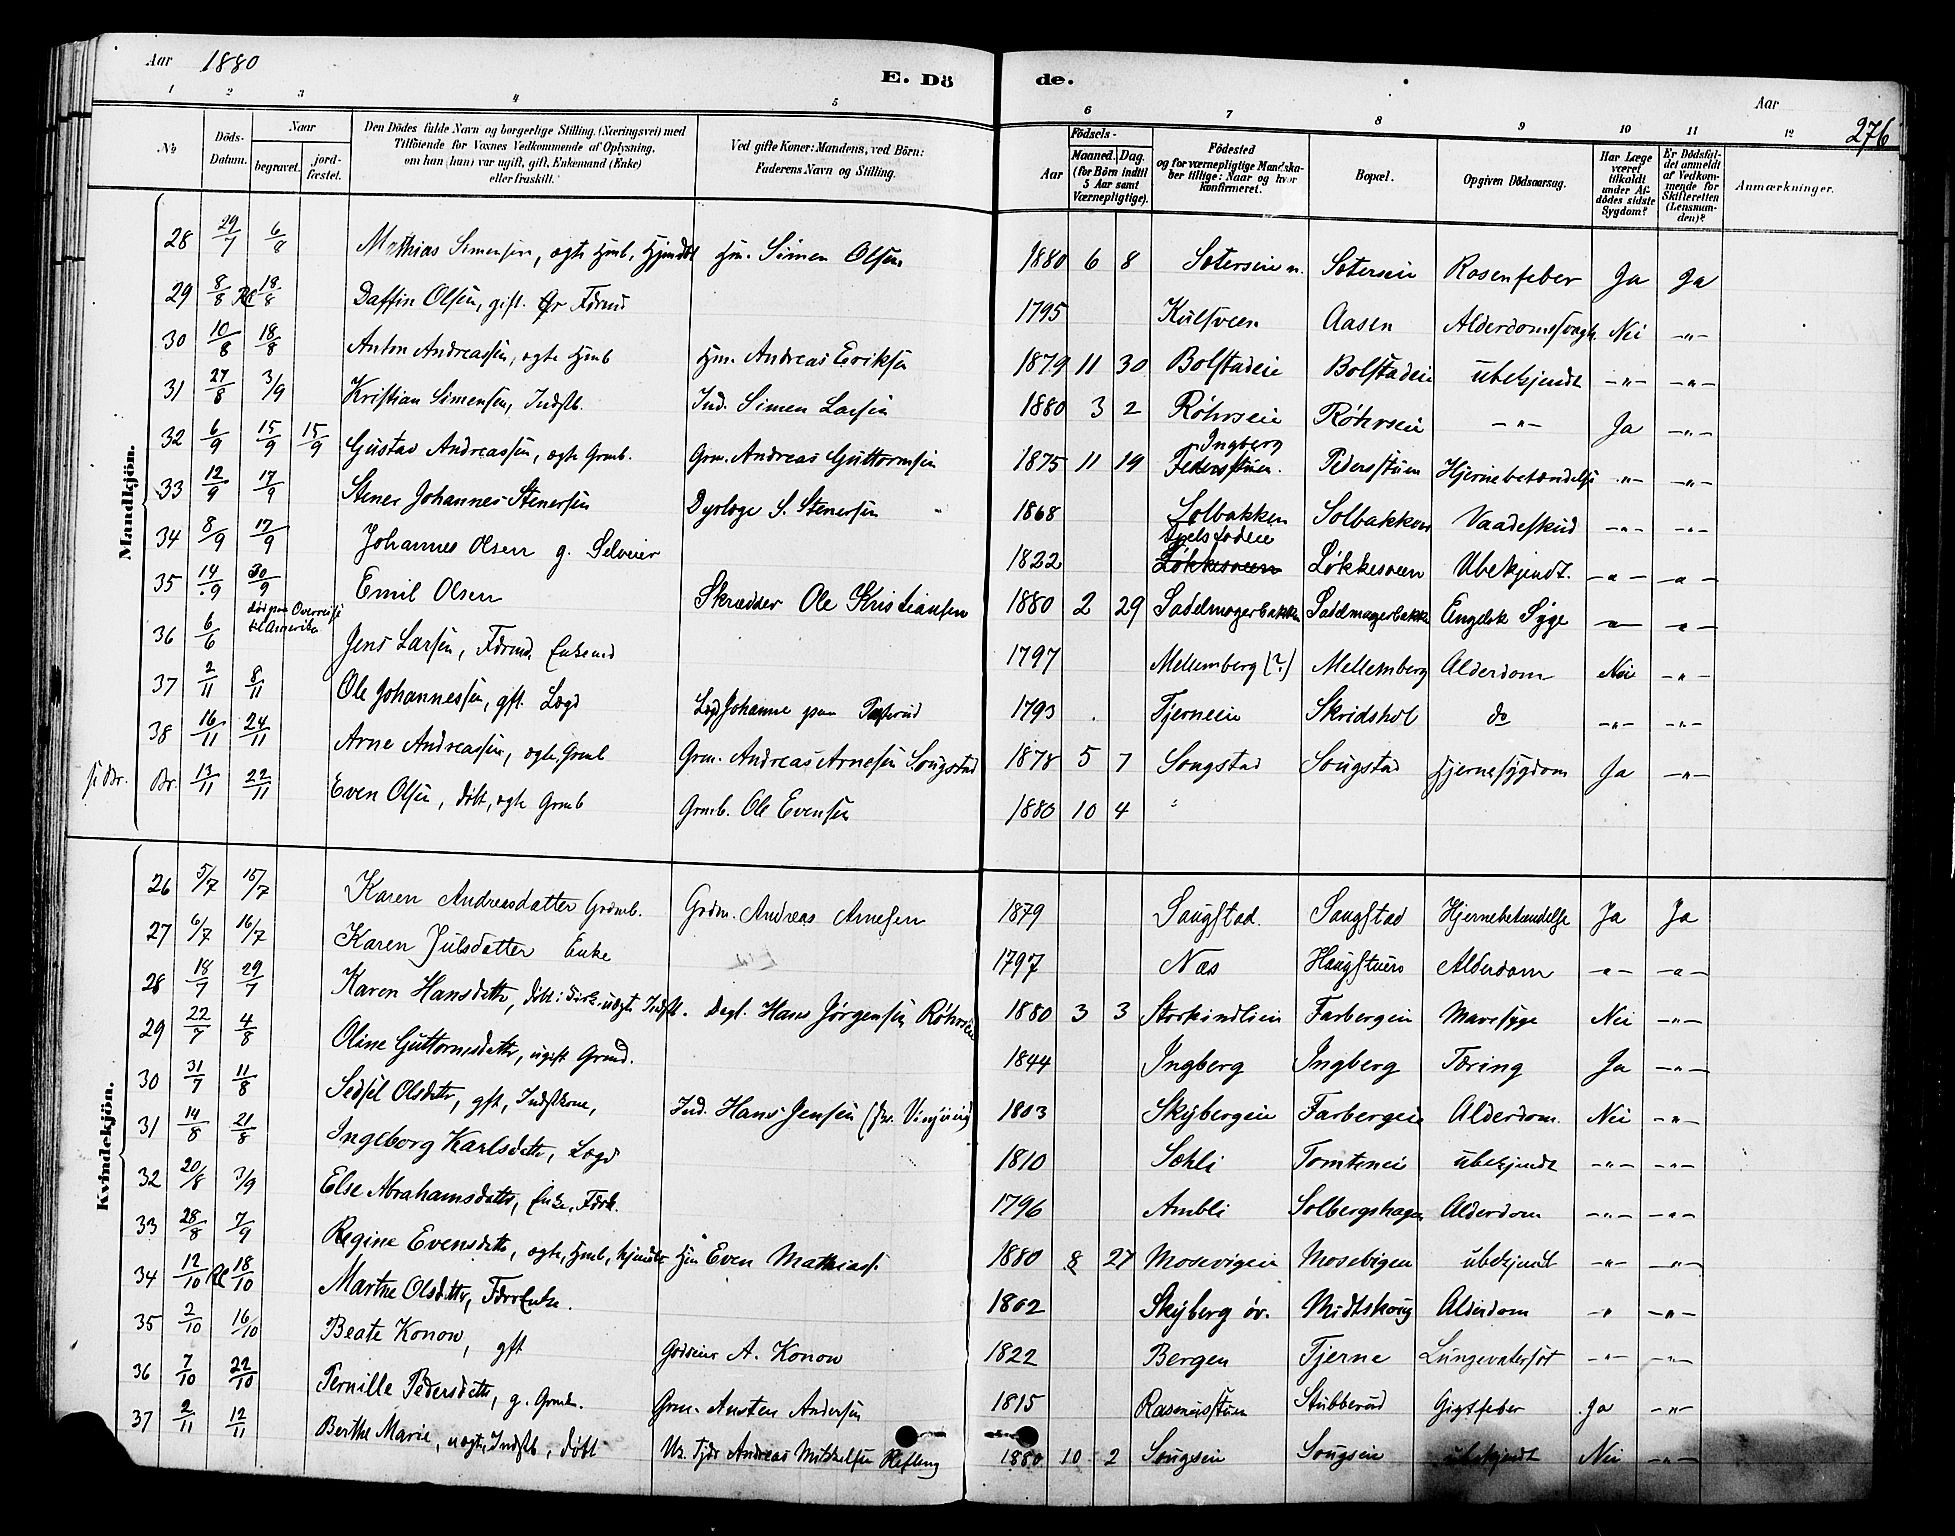 Aar 1880 E. Dö de. Aar 276
1 2 3 4 5 6 7 8 9 10 11 12
No Döds-Datum. Naar begravet. jordfæstet. Den Dödes fulde Navn og borgerlige Stilling. (Næringsvei) med Tilföiende for Voxnes Vedkommende af Oplysning, om han (hun) var ugift, gift, Enkemand (Enke) eller fraskilt. Ved gifte Koner: Mandens, ved Börn: Faderens Navn og Stilling. Födsels- Aar Maaned. Dag. (for Börn indtil 5 Aar samt Værnepligtige). Födested og for værnepligtige Mandskaber tillige: Naar og hvor konfirmeret. Bopæl. Opgiven Dödsaarsag. Har Læge været tilkaldt under Afdödes sidste Sygdom? Er Dödsfaldet anmeldt af Vedkommende for Skifteretten (Lensmanden)? Anmærkninger.
Mandkjön.
28 29/7 6/8 Mathias Simensen, ægte Hmb, Hjemdöbt Hm. Simen Olsen 1880 6 8 Sæterseie n. Sæterseie Rosenfeber Ja Ja
29 8/8 18/8 Daffin Olsen, gift. Födrmd 1795 Kulsveen Aasen Alderdomssvagh. Nei -"-
30 10/8 18/8 Anton Andreassen, ægte Hmb Hm. Andreas Eriksen 1879 11 30 Bolstadeie Bolstadeie ubekjendt -"- -"-
31 27/8 3/9 Kristian Simensen, Indstb. Ind. Simen Larsen 1880 3 2 Röhrseie Röhrseie -"- Ja -"-
32 6/9 15/9 15/9 Gustav Andreassen, ægte Grmb. Grm. Andreas Guttormsen 1875 11 19 Ingberg Pedersstuen. Pedersstuen Hjernebetændelse -"- -"-
33 12/9 17/9 Stener Johannes Stenersen Dyrlæge S. Stenersen 1868 Solbakken Solbakken Vaadeskud -"- -"-
34 8/9 17/9 Johannes Olsen g. Selveier 1822 Lökkesveen Lökkesveen Ubekjendt. -"- -"-
35 14/9 30/9 Emil Olsen Skrædder Ole Kristiansen 1880 2 29 Sadelmagerbakken Sadelmagerbakken Engelsk Syge -"- -"-
36 6/6 död paa Overreise til Amerika Jens Larsen, Födrmd. Enkemd 1797 Mellemberg (?) Mellemberg Alderdom Nei -"-
37 2/11 8/11 Ole Johannessen, gift. Lægd 1793 Tjerneie Skridshol do -"- -"-
38 16/11 24/11 Arne Andreassen, ægte Grmb Grm. Andreas Arnesen Sougstad 1878 5 7 Sougstad Sougstad Hjernesygdom Ja -"-
13/11 22/11 Even Olsen, döbt, ægte Grmb Grmb. Ole Evensen 1880 10 4 "
Kvindekjön.
26 5/7 15/7 Karen Andreasdatter Grdmb. Grdm. Andreas Arnesen 1879 Saugstad Saugstad Hjernebetændelse Ja Ja
27 6/7 16/7 Karen Julsdatter Enke 1797 Næs Haugstuen Alderdom -"- -"-
28 18/7 29/7 Karen Hansdatter, döbt i Kirk. uægte Indstb. Dagl. Hans Jörgensen Röhrseie 1880 3 3 Storkindlien Farbergeie Mavesyge Nei -"-
29 22/7 4/8 Oline Guttormsdatter, ugift Grmd. 1844 Ingberg Ingberg Tæring Ja -"-
30 31/7 11/8 Sedsel Olsdatter, gft, Indstkone, Ind. Hans Jensen 1803 Skybergeie Farbergeie Alderdom. Nei -"-
31 14/8 21/8 Ingeborg Karlsdatter, Lægd 1810 Sæhli Tomteneie ubekjendt -"- -"-
32 20/8 3/9 Else Abrahamsdatter, Enke, Födrk. 1796 Ambli Solbergshagen Alderdom -"- -"-
33 28/8 7/9 Regine Evensdatter, ægte, Hmb, hjemdöbt Hm Even Mathiass. 1880 8 27 Mosevigeie Mosevigen ubekjendt -"- -"-
34 12/10 18/10 Marthe Olsdatter, FödrEnke. 1802 Skyberg öv. Midtskoug Alderdom -"- -"-
35 2/10 16/10 Beate Konow, gft Godseier A. Konow 1822 Bergen Tjerne Lungevatersot -"- -"-
36 7/10 22/10 Pernille Pedersdatter, g. Grmk. Grm. Austen Andersen 1815 Rasmusstuen Stubberud Gigtfeber Ja -"-
37 2/11 12/11 Berthe Marie, uægte, Indstb, döbt Andreas Mikkelsen Refling 1880 10 2 Sougseie Sougseie ubekjendt Nei -"-